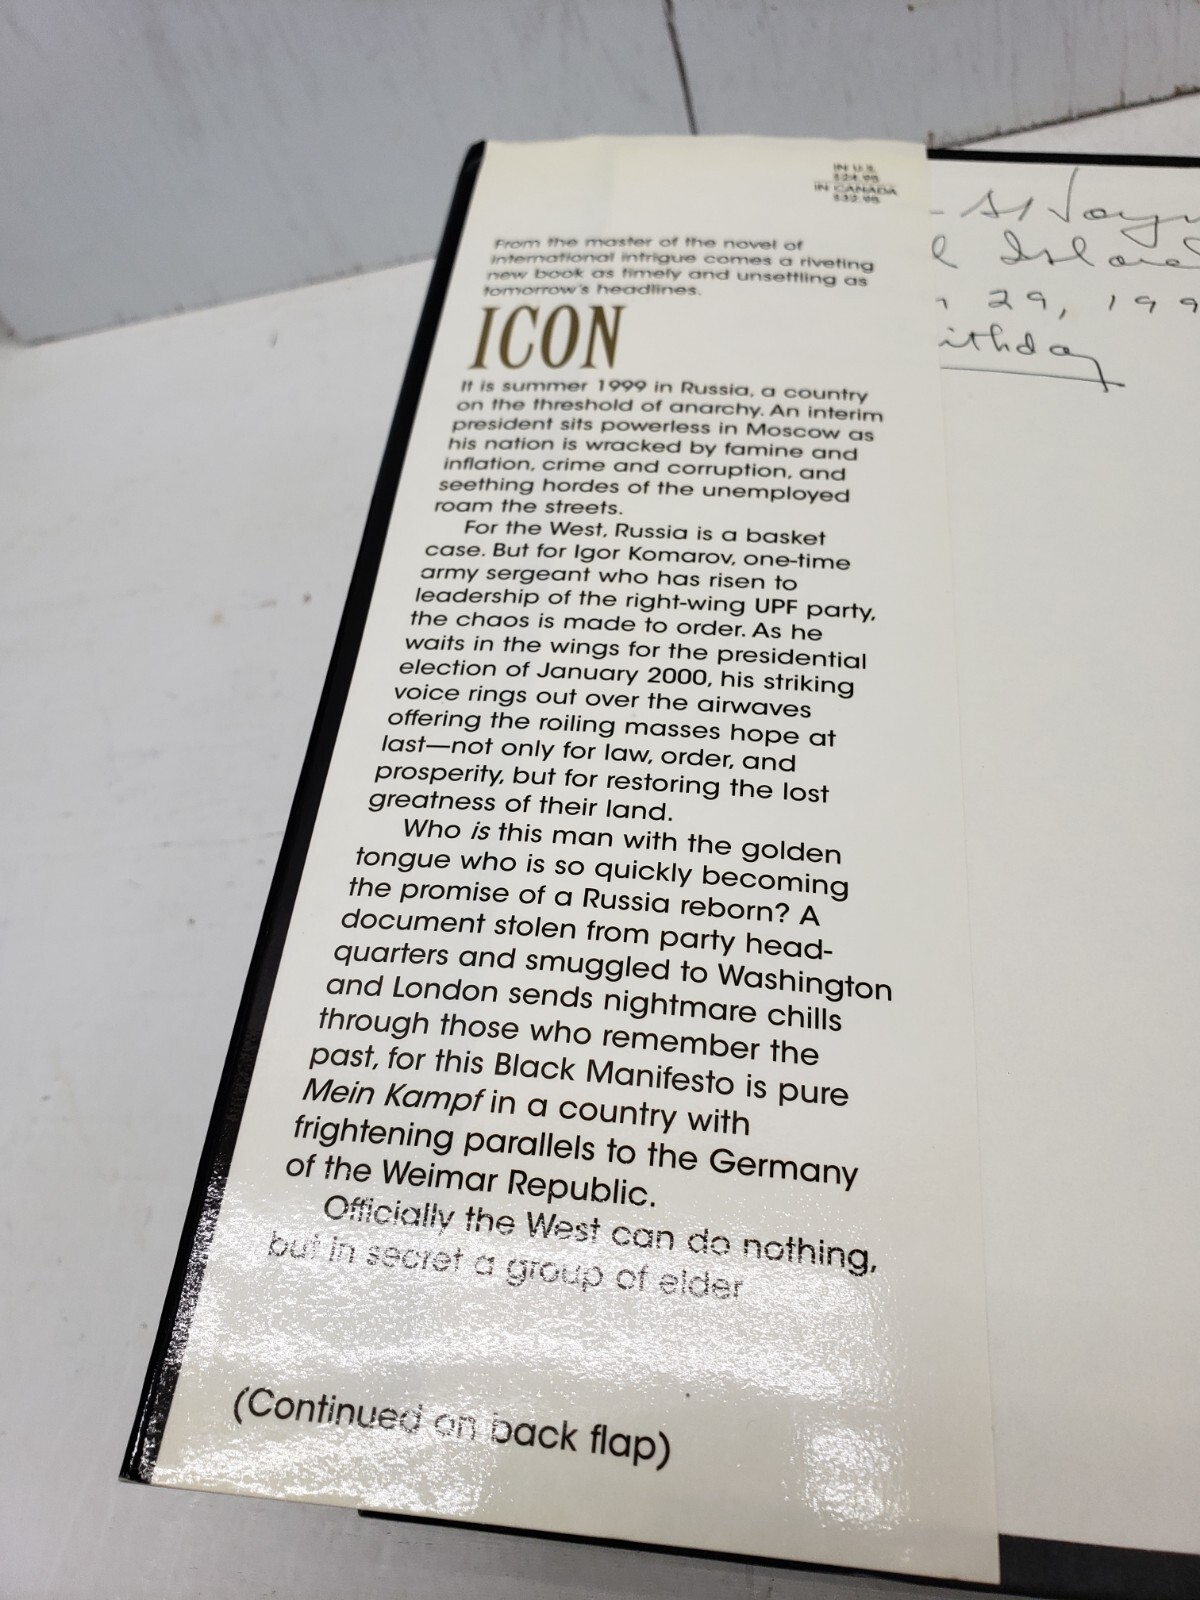 IN U.S.
$24.95
IN CANADA
$32.95
From the master of the novel of
international intrigue comes a riveting
new book as timely and unsettling as
tomorrow's headlines.
ICON
It is summer 1999 in Russia, a country
on the threshold of anarchy. An interim
president sits powerless in Moscow as
his nation is wracked by famine and
inflation, crime and corruption, and
seething hordes of the unemployed
roam the streets.
For the West, Russia is a basket
case. But for Igor Komarov, one-time
army sergeant who has risen to
leadership of the right-wing UPF party,
the chaos is made to order. As he
waits in the wings for the presidential
election of January 2000, his striking
voice rings out over the airwaves
offering the roiling masses hope at
last—not only for law, order, and
prosperity, but for restoring the lost
greatness of their land.
Who is this man with the golden
tongue who is so quickly becoming
the promise of a Russia reborn? A
document stolen from party head-
quarters and smuggled to Washington
and London sends nightmare chills
through those who remember the
past, for this Black Manifesto is pure
Mein Kampf in a country with
frightening parallels to the Germany
of the Weimar Republic.
Officially the West can do nothing,
but in secret a group of elder
(Continued on back flap)
29, 199
ithday